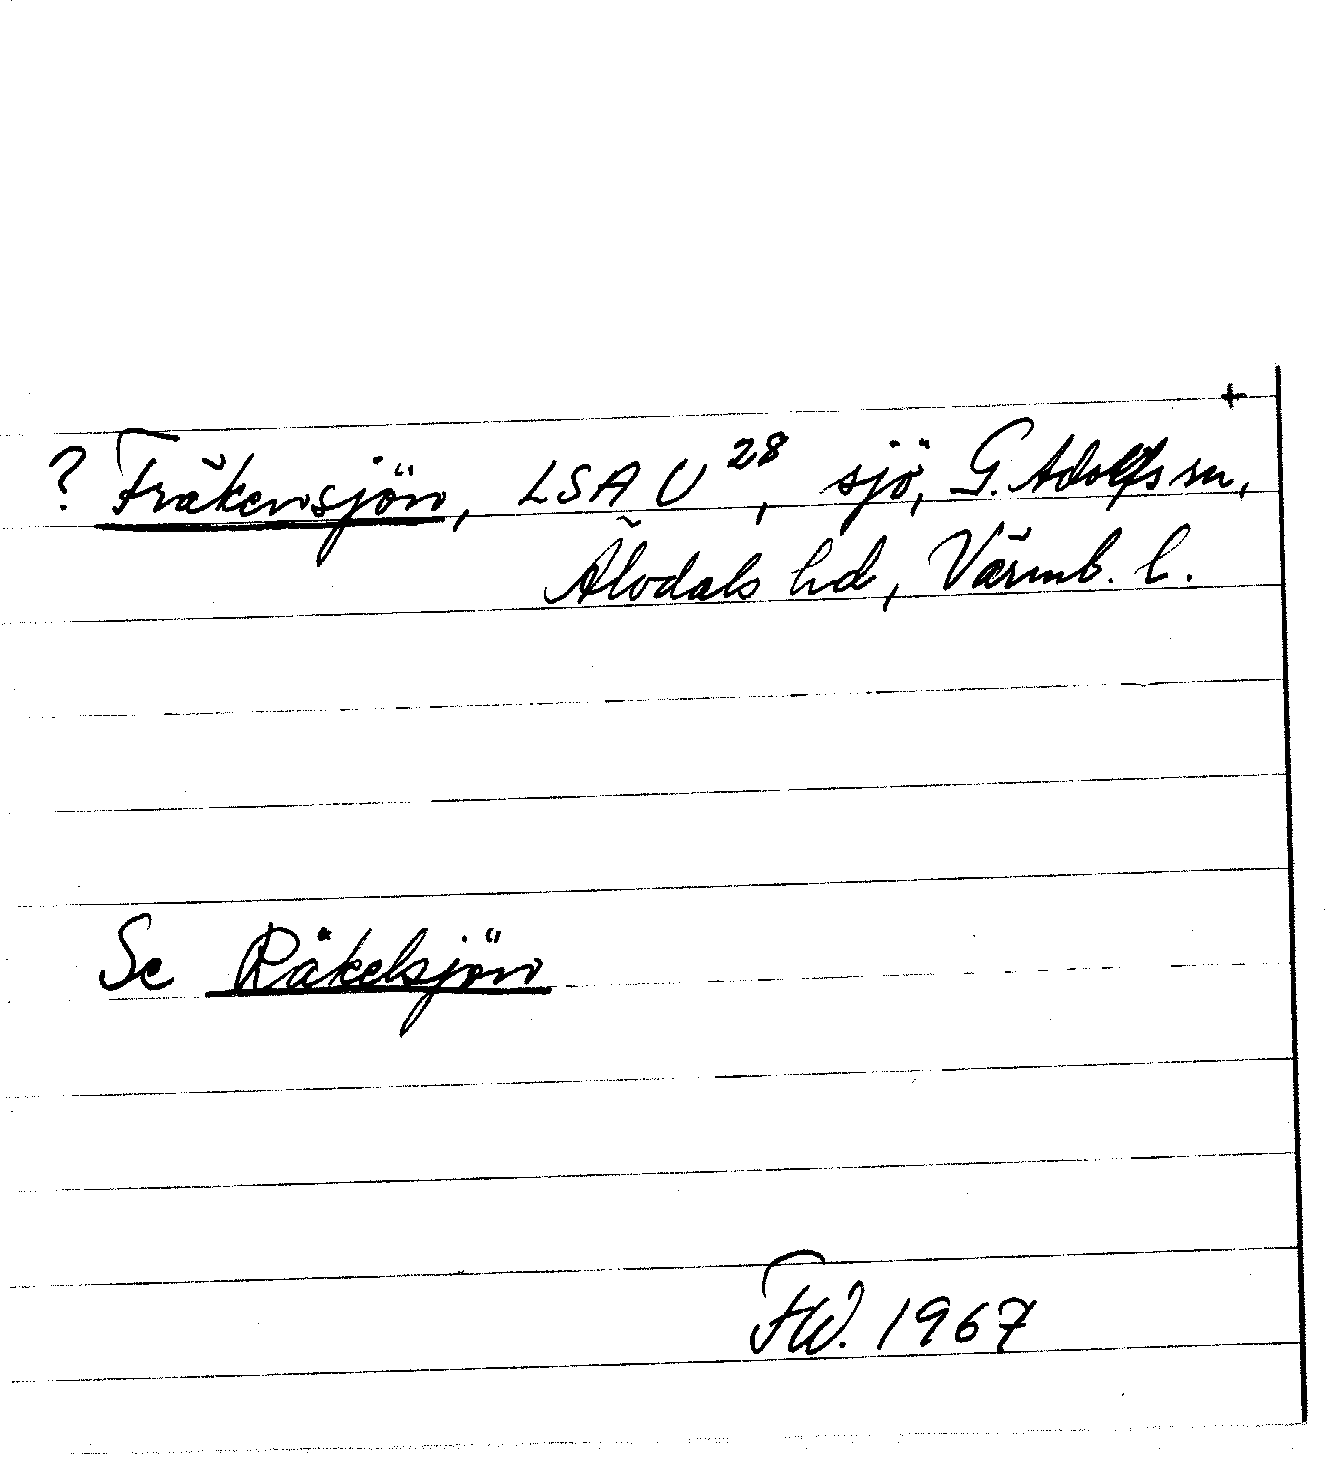 +
? Fräkensjön, LSA U 28, sjö, G. Adolfs sn,
Älvdals hd, Värml. l.
Se Räkelsjön
FW. 1967